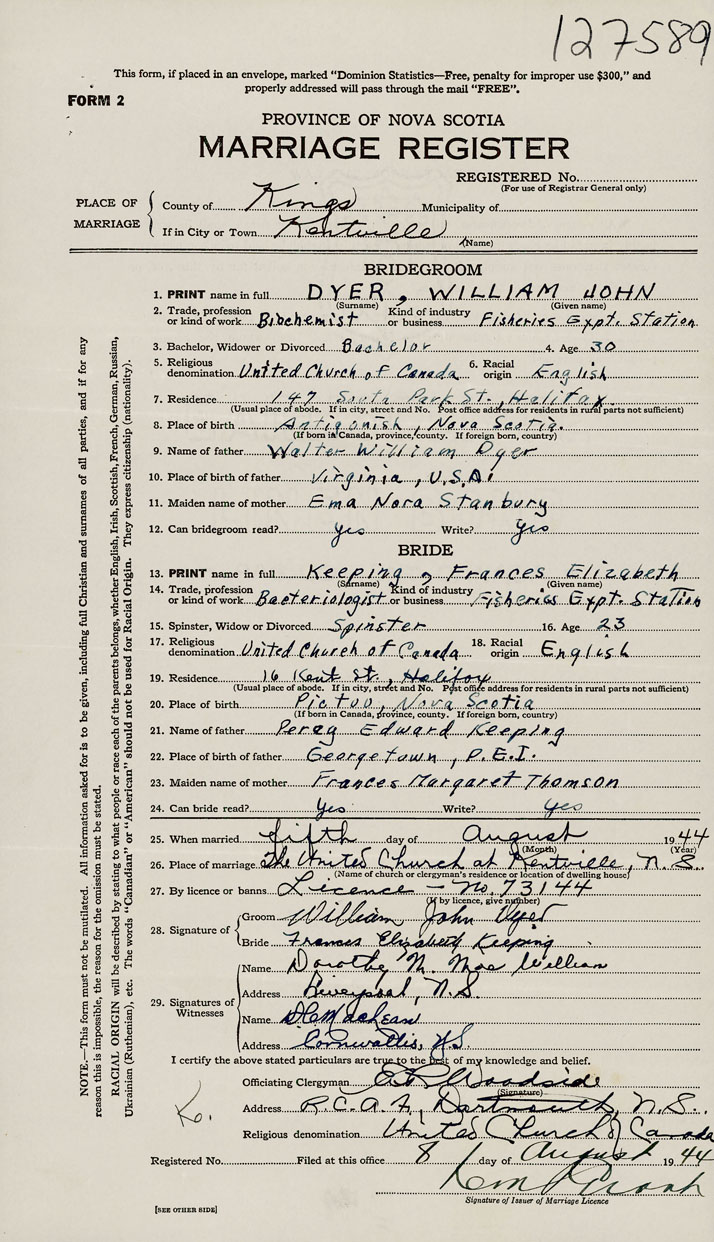 127589
This form, if placed in an envelope, marked "Dominion Statistics—Free, penalty for improper use $300," and
properly addressed will pass through the mail "FREE".
FORM 2
PROVINCE OF NOVA SCOTIA
MARRIAGE REGISTER
REGISTERED No.
(For use of Registrar General only)
PLACE OF MARRIAGE
County of Kings Municipality of
If in City or Town Kentville
(Name)
BRIDEGROOM
1. PRINT name in full DYER, WILLIAM JOHN
(Surname) (Given name)
2. Trade, profession or kind of work Biochemist Kind of industry or business Fisheries Expt. Station
3. Bachelor, Widower or Divorced Bachelor 4. Age 30
5. Religious denomination United Church of Canada 6. Racial origin English
7. Residence 147 South Park St., Halifax
(Usual place of abode. If in city, street and No. Post office address for residents in rural parts not sufficient)
8. Place of birth Antigonish, Nova Scotia.
(If born in Canada, province, county. If foreign born, country)
9. Name of father Walter William Dyer
10. Place of birth of father Virginia, U.S.A.
11. Maiden name of mother Ema Nora Stanbury
12. Can bridegroom read? Yes Write? Yes
BRIDE
13. PRINT name in full Keeping, Frances Elizabeth
(Surname) (Given name)
14. Trade, profession or kind of work Bacteriologist Kind of industry or business Fisheries Expt. Station
15. Spinster, Widow or Divorced Spinster 16. Age 23
17. Religious denomination United Church of Canada 18. Racial origin English
19. Residence 16 Kent St., Halifax
(Usual place of abode. If in city, street and No. Post office address for residents in rural parts not sufficient)
20. Place of birth Pictou, Nova Scotia
(If born in Canada, province, county. If foreign born, country)
21. Name of father Percy Edward Keeping
22. Place of birth of father Georgetown, P.E.I.
23. Maiden name of mother Frances Margaret Thomson
24. Can bride read? Yes Write? Yes
25. When married fifth day of August 1944
(Month) (Year)
26. Place of marriage The United Church at Kentville, N.S.
(Name of church or clergyman's residence or location of dwelling house)
27. By licence or banns Licence - No. 73144
(If by licence, give number)
28. Signature of
Groom William John Dyer
Bride Frances Elizabeth Keeping
29. Signatures of Witnesses
Name Dorothy M. Mac William
Address Liverpool, N.S.
Name MacLean
Address Cornwallis, N.S.
I certify the above stated particulars are true to the best of my knowledge and belief.
Officiating Clergyman Woodside
(Signature)
Address R.C.A.F., Dartmouth, N.S.
Religious denomination United Church of Canada
Registered No. Filed at this office 8 day of August 1944
Signature of Issuer of Marriage Licence
[SEE OTHER SIDE]
NOTE.—This form must not be mutilated. All information asked for is to be given, including full Christian and surnames of all parties, and if for any
reason this is impossible, the reason for the omission must be stated.
RACIAL ORIGIN will be described by stating to what people or race each of the parents belongs, whether English, Irish, Scottish, French, German, Russian,
Ukrainian (Ruthenian), etc. The words "Canadian" or "American" should not be used for Racial Origin. They express citizenship (nationality).